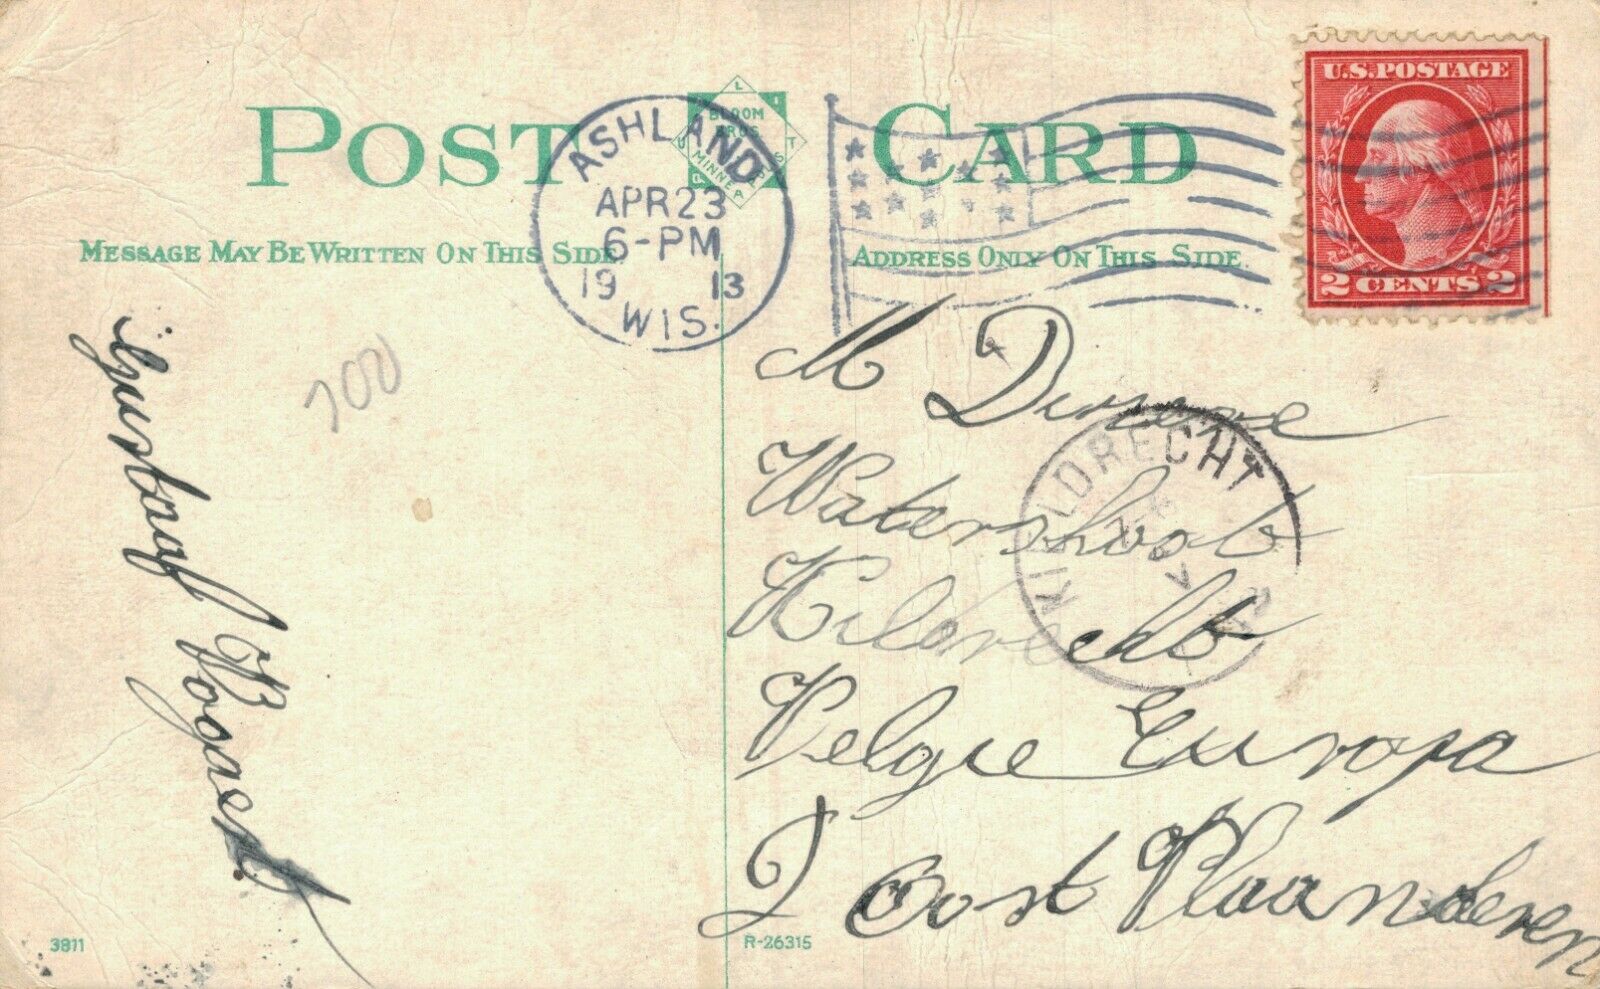 POST CARD
BLOOM BROS
MINNEAPOLIS
ASHLAND
APR 23
6-PM
19 13
WIS.
U.S. POSTAGE
2 CENTS 2
MESSAGE MAY BE WRITTEN ON THIS SIDE
ADDRESS ONLY ON THIS SIDE.
M
Watershoot
Kildrecht
KIELDRECHT
Belgie Europa
Oost Vlaanderen
Gustaaf Bogaert
700
3811
R-26315